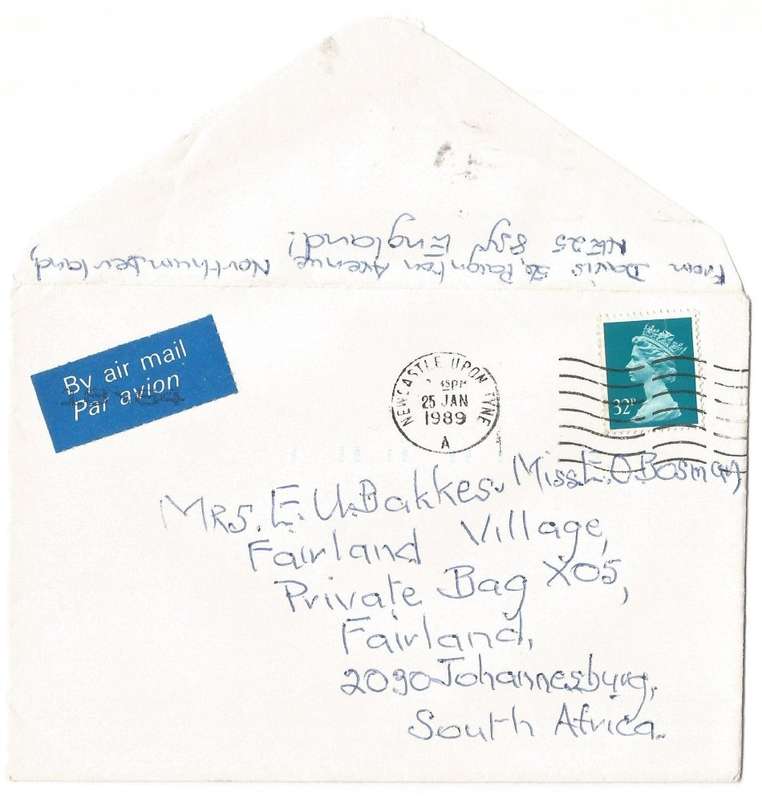 From Davis 36, Paignton Avenue, Northumberland,
NE25 8SY England!
By air mail
Par avion
NEWCASTLE UPON TYNE
25 JAN
1989
A
32P
Mrs. E. U. Bakkes. Miss E. O. Bosman
Fairland Village,
Private Bag X05,
Fairland,
2030 Johannesburg,
South Africa.